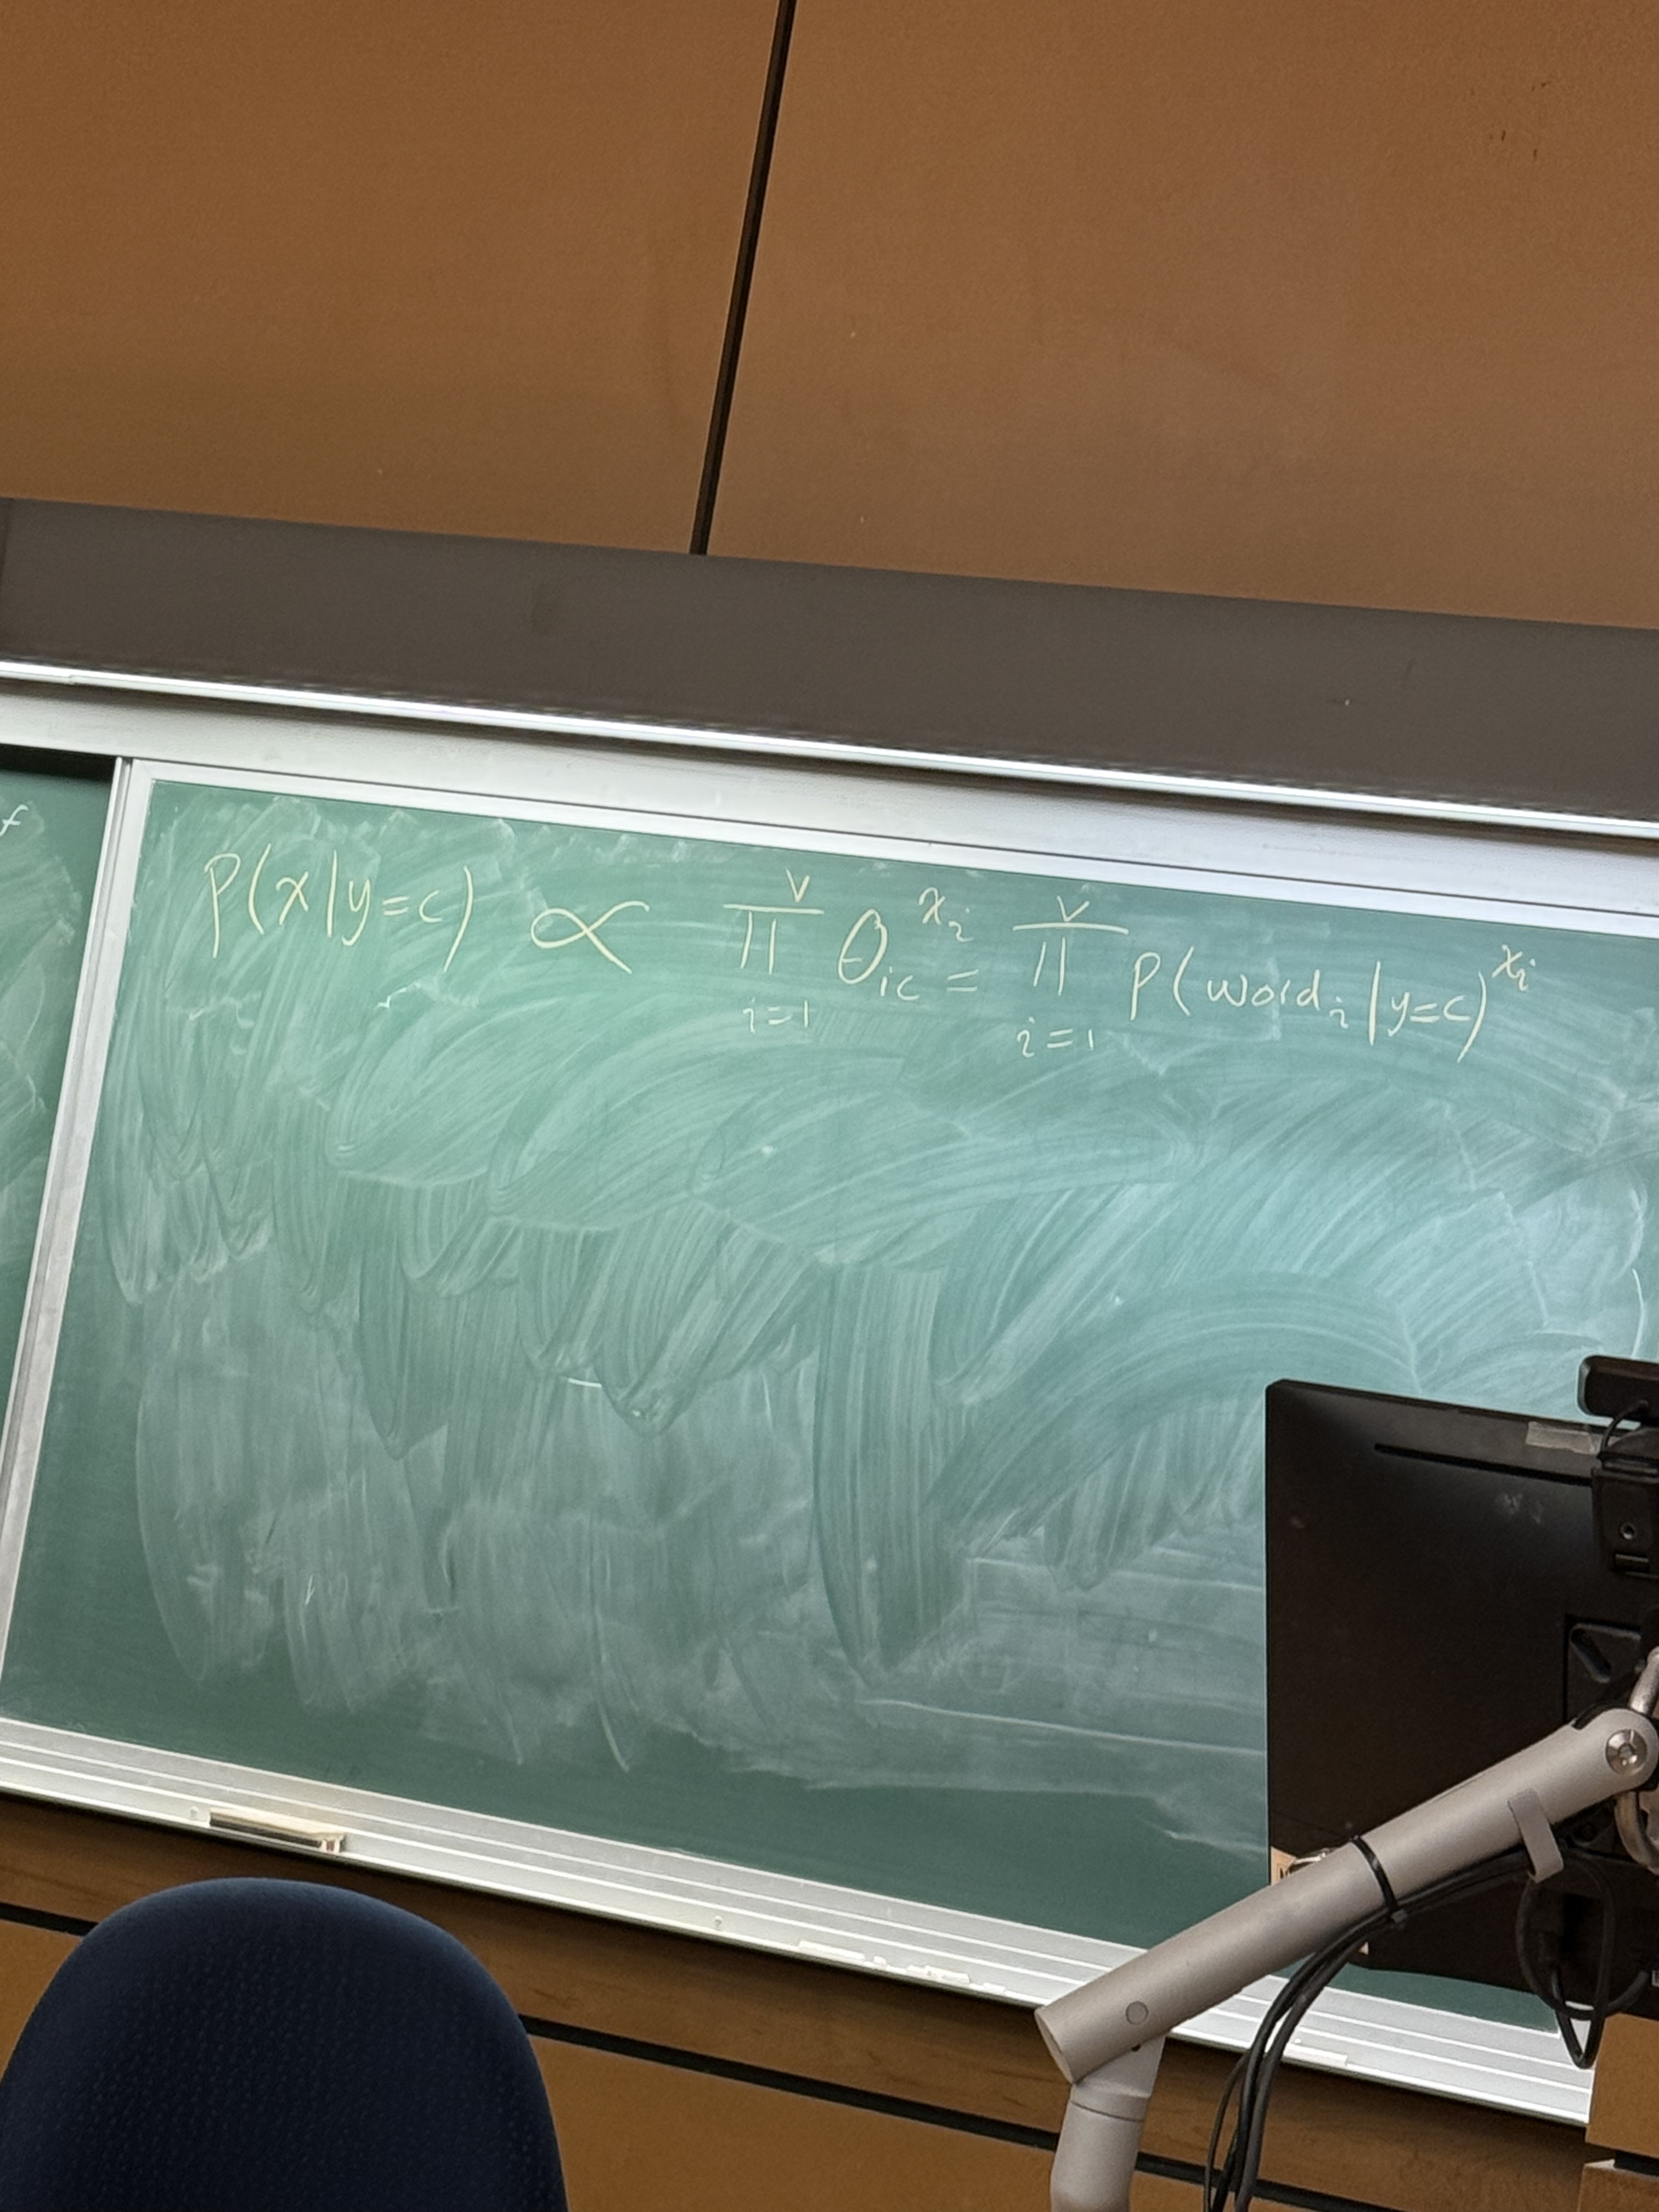 f
P(x|y=c) ∝ ∏_{i=1}^{V} θ_{ic}^{x_i} = ∏_{i=1}^{V} P(word_i|y=c)^{x_i}